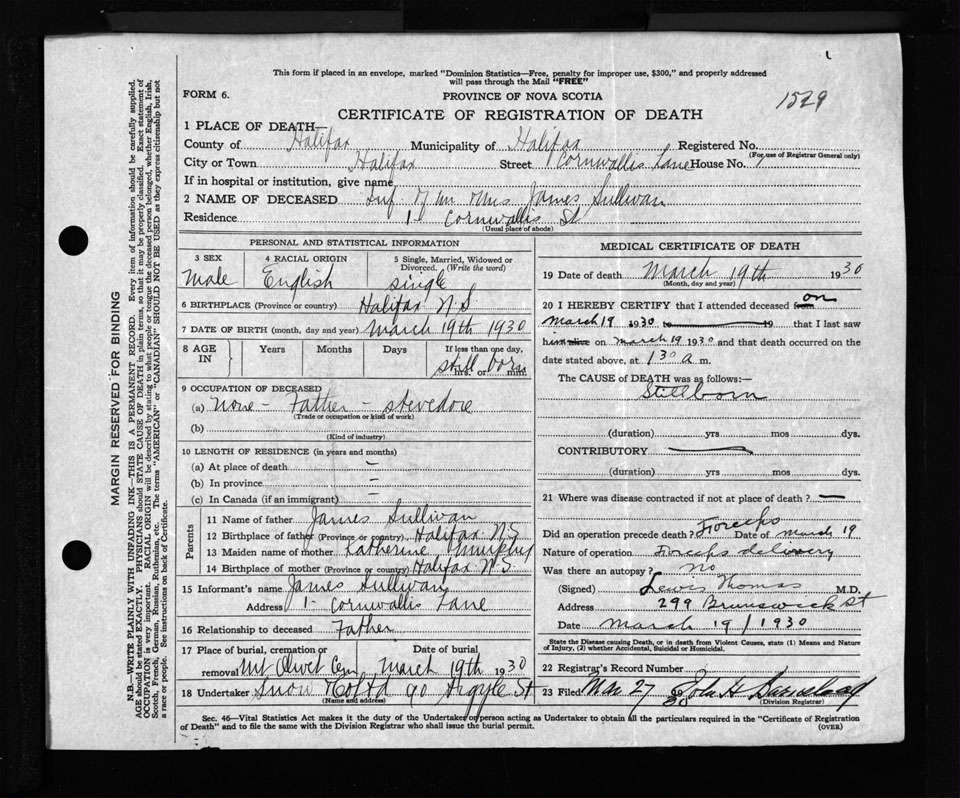 This form if placed in an envelope, marked "Dominion Statistics—Free, penalty for improper use, $300," and properly addressed
will pass through the Mail "FREE"
FORM 6. PROVINCE OF NOVA SCOTIA 1529
CERTIFICATE OF REGISTRATION OF DEATH
1 PLACE OF DEATH—
County of Halifax Municipality of Halifax Registered No.
(For use of Registrar General only)
City or Town Halifax Street 1 Cornwallis Lane House No. 1
If in hospital or institution, give name
2 NAME OF DECEASED Inf. of Mr Mrs James Sullivan
Residence 1- Cornwallis St
(Usual place of abode)
MARGIN RESERVED FOR BINDING
N.B.—WRITE PLAINLY WITH UNFADING INK—THIS IS A PERMANENT RECORD. Every item of information should be carefully supplied.
AGE should be stated EXACTLY. PHYSICIANS should STATE CAUSE OF DEATH in plain terms, so that it may be properly classified. Exact statement of
OCCUPATION is very important. RACIAL ORIGIN will be described by stating to what people or tongue the deceased person belonged, whether English, Irish,
Scotch, French, German, Russian, Ruthenian, etc. The terms "AMERICAN" or "CANADIAN" SHOULD NOT BE USED as they express citizenship but not
a race or people. See instructions on back of Certificate.
PERSONAL AND STATISTICAL INFORMATION
3 SEX 4 RACIAL ORIGIN 5 Single, Married, Widowed or
Divorced. (Write the word)
Male English single
6 BIRTHPLACE (Province or country) Halifax N.S.
7 DATE OF BIRTH (month, day and year) March 19th 1930
8 AGE IN Years Months Days If less than one day,
still born
hrs. or min.
9 OCCUPATION OF DECEASED
(a) None - Father - stevedore
(Trade or occupation or kind of work)
(b)
(Kind of industry)
10 LENGTH OF RESIDENCE (in years and months)
(a) At place of death —
(b) In province —
(c) In Canada (if an immigrant) —
Parents
11 Name of father James Sullivan
12 Birthplace of father (Province or country) Halifax N.S
13 Maiden name of mother Katherine Murphy
14 Birthplace of mother (Province or country) Halifax N.S.
15 Informant's name James Sullivan
Address 1- Cornwallis Lane
16 Relationship to deceased Father
17 Place of burial, cremation or Date of burial
removal Mt Olivet Cem March 19th 1930
18 Undertaker Snow & Co Ltd 90 Argyle St
(Name and address)
MEDICAL CERTIFICATE OF DEATH
19 Date of death March 19th 1930
(Month, day and year)
20 I HEREBY CERTIFY that I attended deceased from on
March 19 1930 to 19 that I last saw
him alive on March 19 1930 and that death occurred on the
date stated above, at 1 30 a m.
The CAUSE of DEATH was as follows:—
Stillborn
(duration) yrs mos dys.
CONTRIBUTORY —
(duration) yrs mos dys.
21 Where was disease contracted if not at place of death? —
Did an operation precede death? Forceps Date of March 19
Nature of operation Forceps delivery
Was there an autopsy? No
(Signed) Lewis Thomas M.D.
Address 299 Brunswick St
Date March 19/1930
State the Disease causing Death, or in death from Violent Causes, state (1) Means and Nature
of Injury, (2) whether Accidental, Suicidal or Homicidal.
22 Registrar's Record Number
23 Filed Mar 27 1930
(Division Registrar)
Sec. 46—Vital Statistics Act makes it the duty of the Undertaker or person acting as Undertaker to obtain all the particulars required in the "Certificate of Registration
of Death" and to file the same with the Division Registrar who shall issue the burial permit. (OVER)